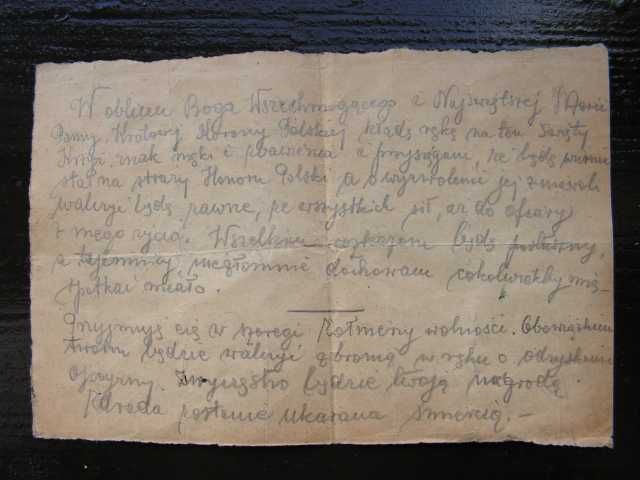 W obliczu Boga Wszechmogącego i Najświętszej Marii
Panny, Królowej Korony Polskiej kładę rękę na ten Święty
Krzyż, znak męki i zbawienia i przysięgam, że będę wiernie
stał na straży Honoru Polski a o wyzwolenie jej z niewoli
walczyć będę ze wszystkich sił, aż do ofiary
z mego życia. Wszelkim rozkazom będę posłuszny,
a tajemnicy niezłomnie dochowam cokolwiekby mię
spotkać miało.
Przyjmuję cię w szeregi Żołnierzy wolności. Obowiązkiem
twoim będzie walczyć z bronią w ręku o odzyskanie
Ojczyzny. Zwycięstwo będzie twoją nagrodą.
Zdrada zostanie ukarana śmiercią. —